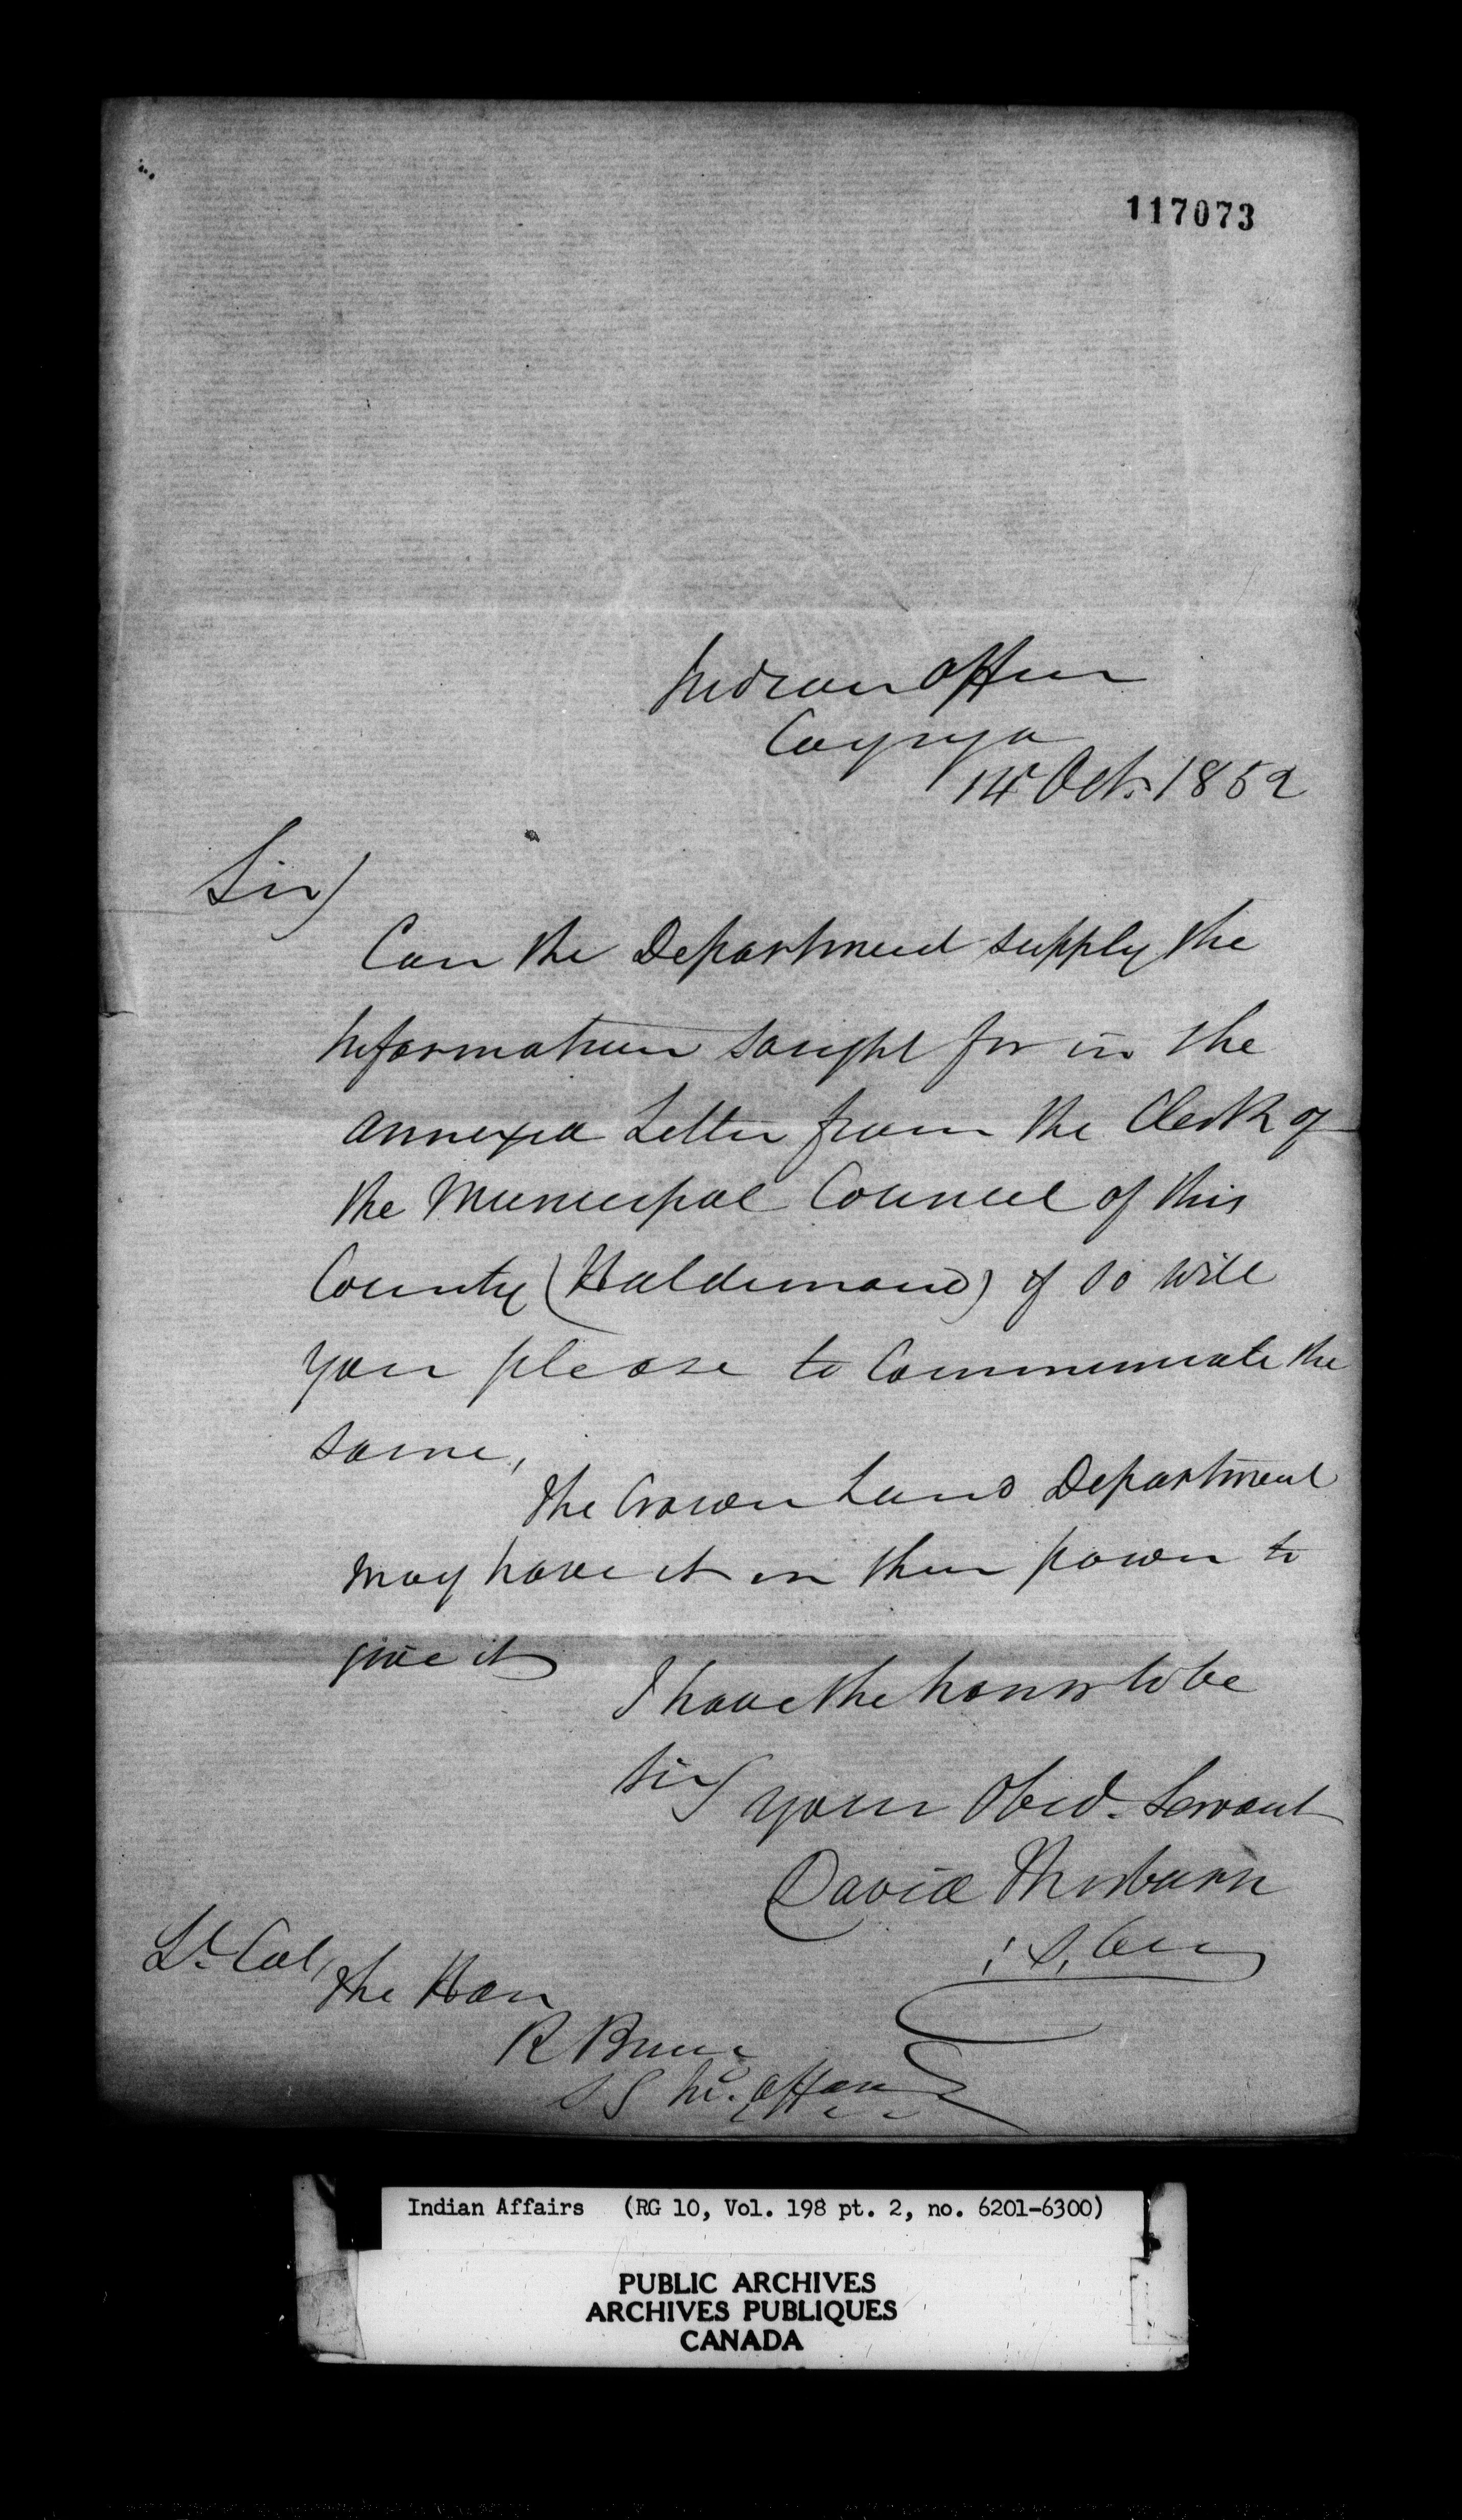 117073
Indian Office
Cayuga
14 Oct. 1852
Sir)
Can the Department supply the
Information sought for in the
annexed Letter from the Clerk of
the Municipal Council of this
County (Haldimand) if so will
you please to Communicate the
same,
The Crown Land Department
may have it in their power to
give it
I have the honor to be
Sir
Your Obed. Servant
David Thorburn
Lt. Col,
the Hon
R Bruce
S G In. Affairs
Indian Affairs (RG 10, Vol. 198 pt. 2, no. 6201-6300)
PUBLIC ARCHIVES
ARCHIVES PUBLIQUES
CANADA